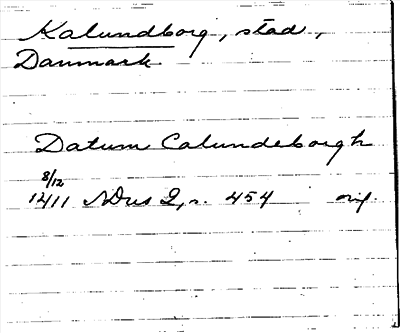 Kalundborg, stad,
Danmark
Datum Calundeborgh
8/12
1411 NDus 2, s. 454 orig.